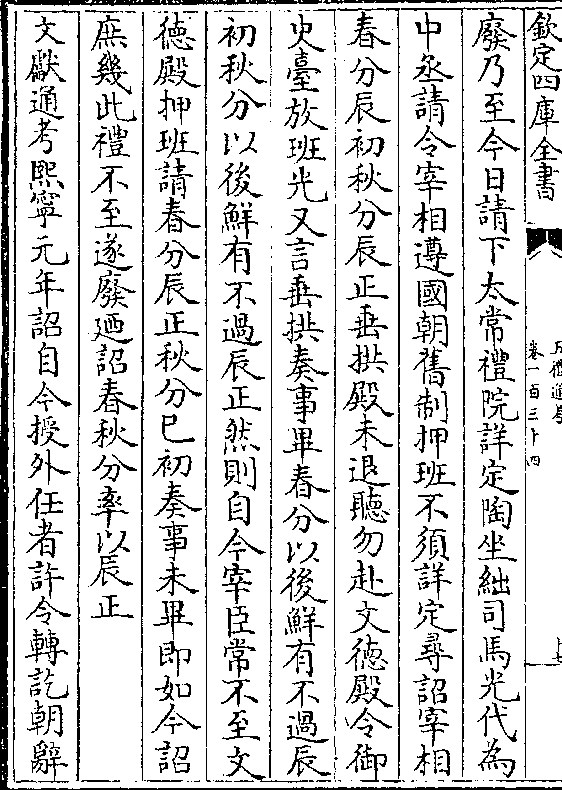 欽定四庫全書
五禮通考
卷一百三十四
廢乃至今日請下太常禮院詳定陶坐絀司馬光代為
中丞請令宰相遵國朝舊制押班不須詳定尋詔宰相
春分辰初秋分辰正垂拱殿未退聽勿赴文徳殿令御
史臺放班光又言垂拱奏事畢春分以後鮮有不過辰
初秋分以後鮮有不過辰正然則自今宰臣常不至文
徳殿押班請春分辰正秋分巳初奏事未畢即如今詔
庶幾此禮不至遂廢廼詔春秋分率以辰正
文獻通考熙寧元年詔自今授外任者許令轉訖朝辭